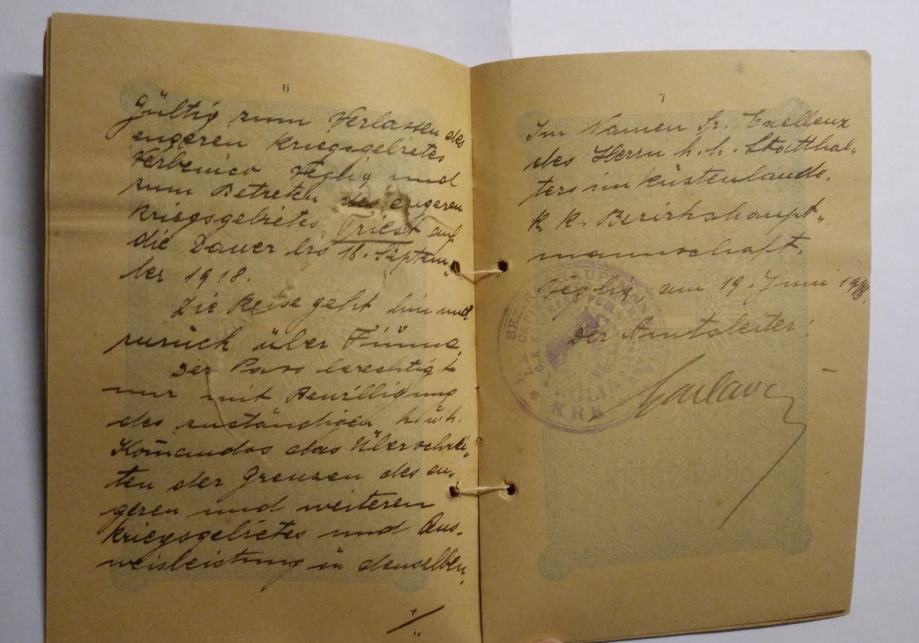 6
Gültig zum Verlassen des
engeren Kriegsgebietes
Verbenico Veglia und
zum Betreten des engeren
Kriegsgebietes Triest auf
die Dauer bis 18. Septem-
ber 1918.
Die Reise geht hin und
zurück über Fiume,
Der Pass berechtigt
nur mit Bewilligung
des zuständigen k. u. k.
Komandos das Überschrei-
ten der Grenzen des en-
geren und weiteren
Kriegsgebietes und Aus-
weisleistung in denselben.
7
Im Namen Sr. Exellenz
des Herrn k. k. Statthal-
ters im Küstenlande.
k. k. Bezirkshaupt-
mannschaft.
Veglia, am 19. Juni 1918.
Der Amtsleiter:
BEZIRKSHAUPTMANN
KRK